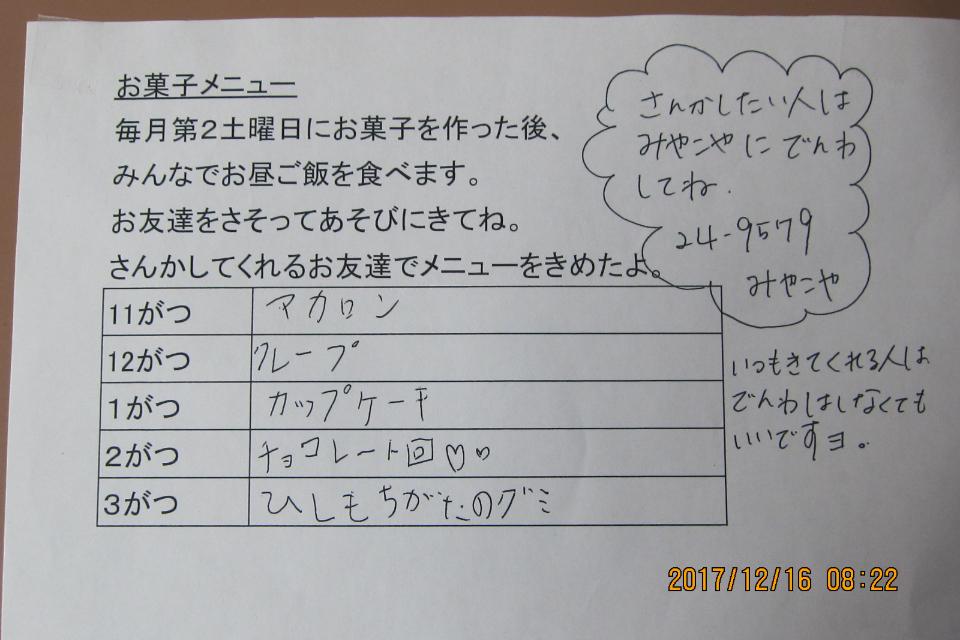 お菓子メニュー
毎月第2土曜日にお菓子を作った後、
みんなでお昼ご飯を食べます。
お友達をさそってあそびにきてね。
さんかしてくれるお友達でメニューをきめたよ。
さんかしたい人は
みやこやに でんわ
してね.
24-9579
みやこや
11がつ マカロン
12がつ クレープ
1がつ カップケーキ
2がつ チョコレート回♡♡
3がつ ひしもちがたのグミ
いつもきてくれる人は
でんわはしなくても
いいですヨ。
2017/12/16 08:22